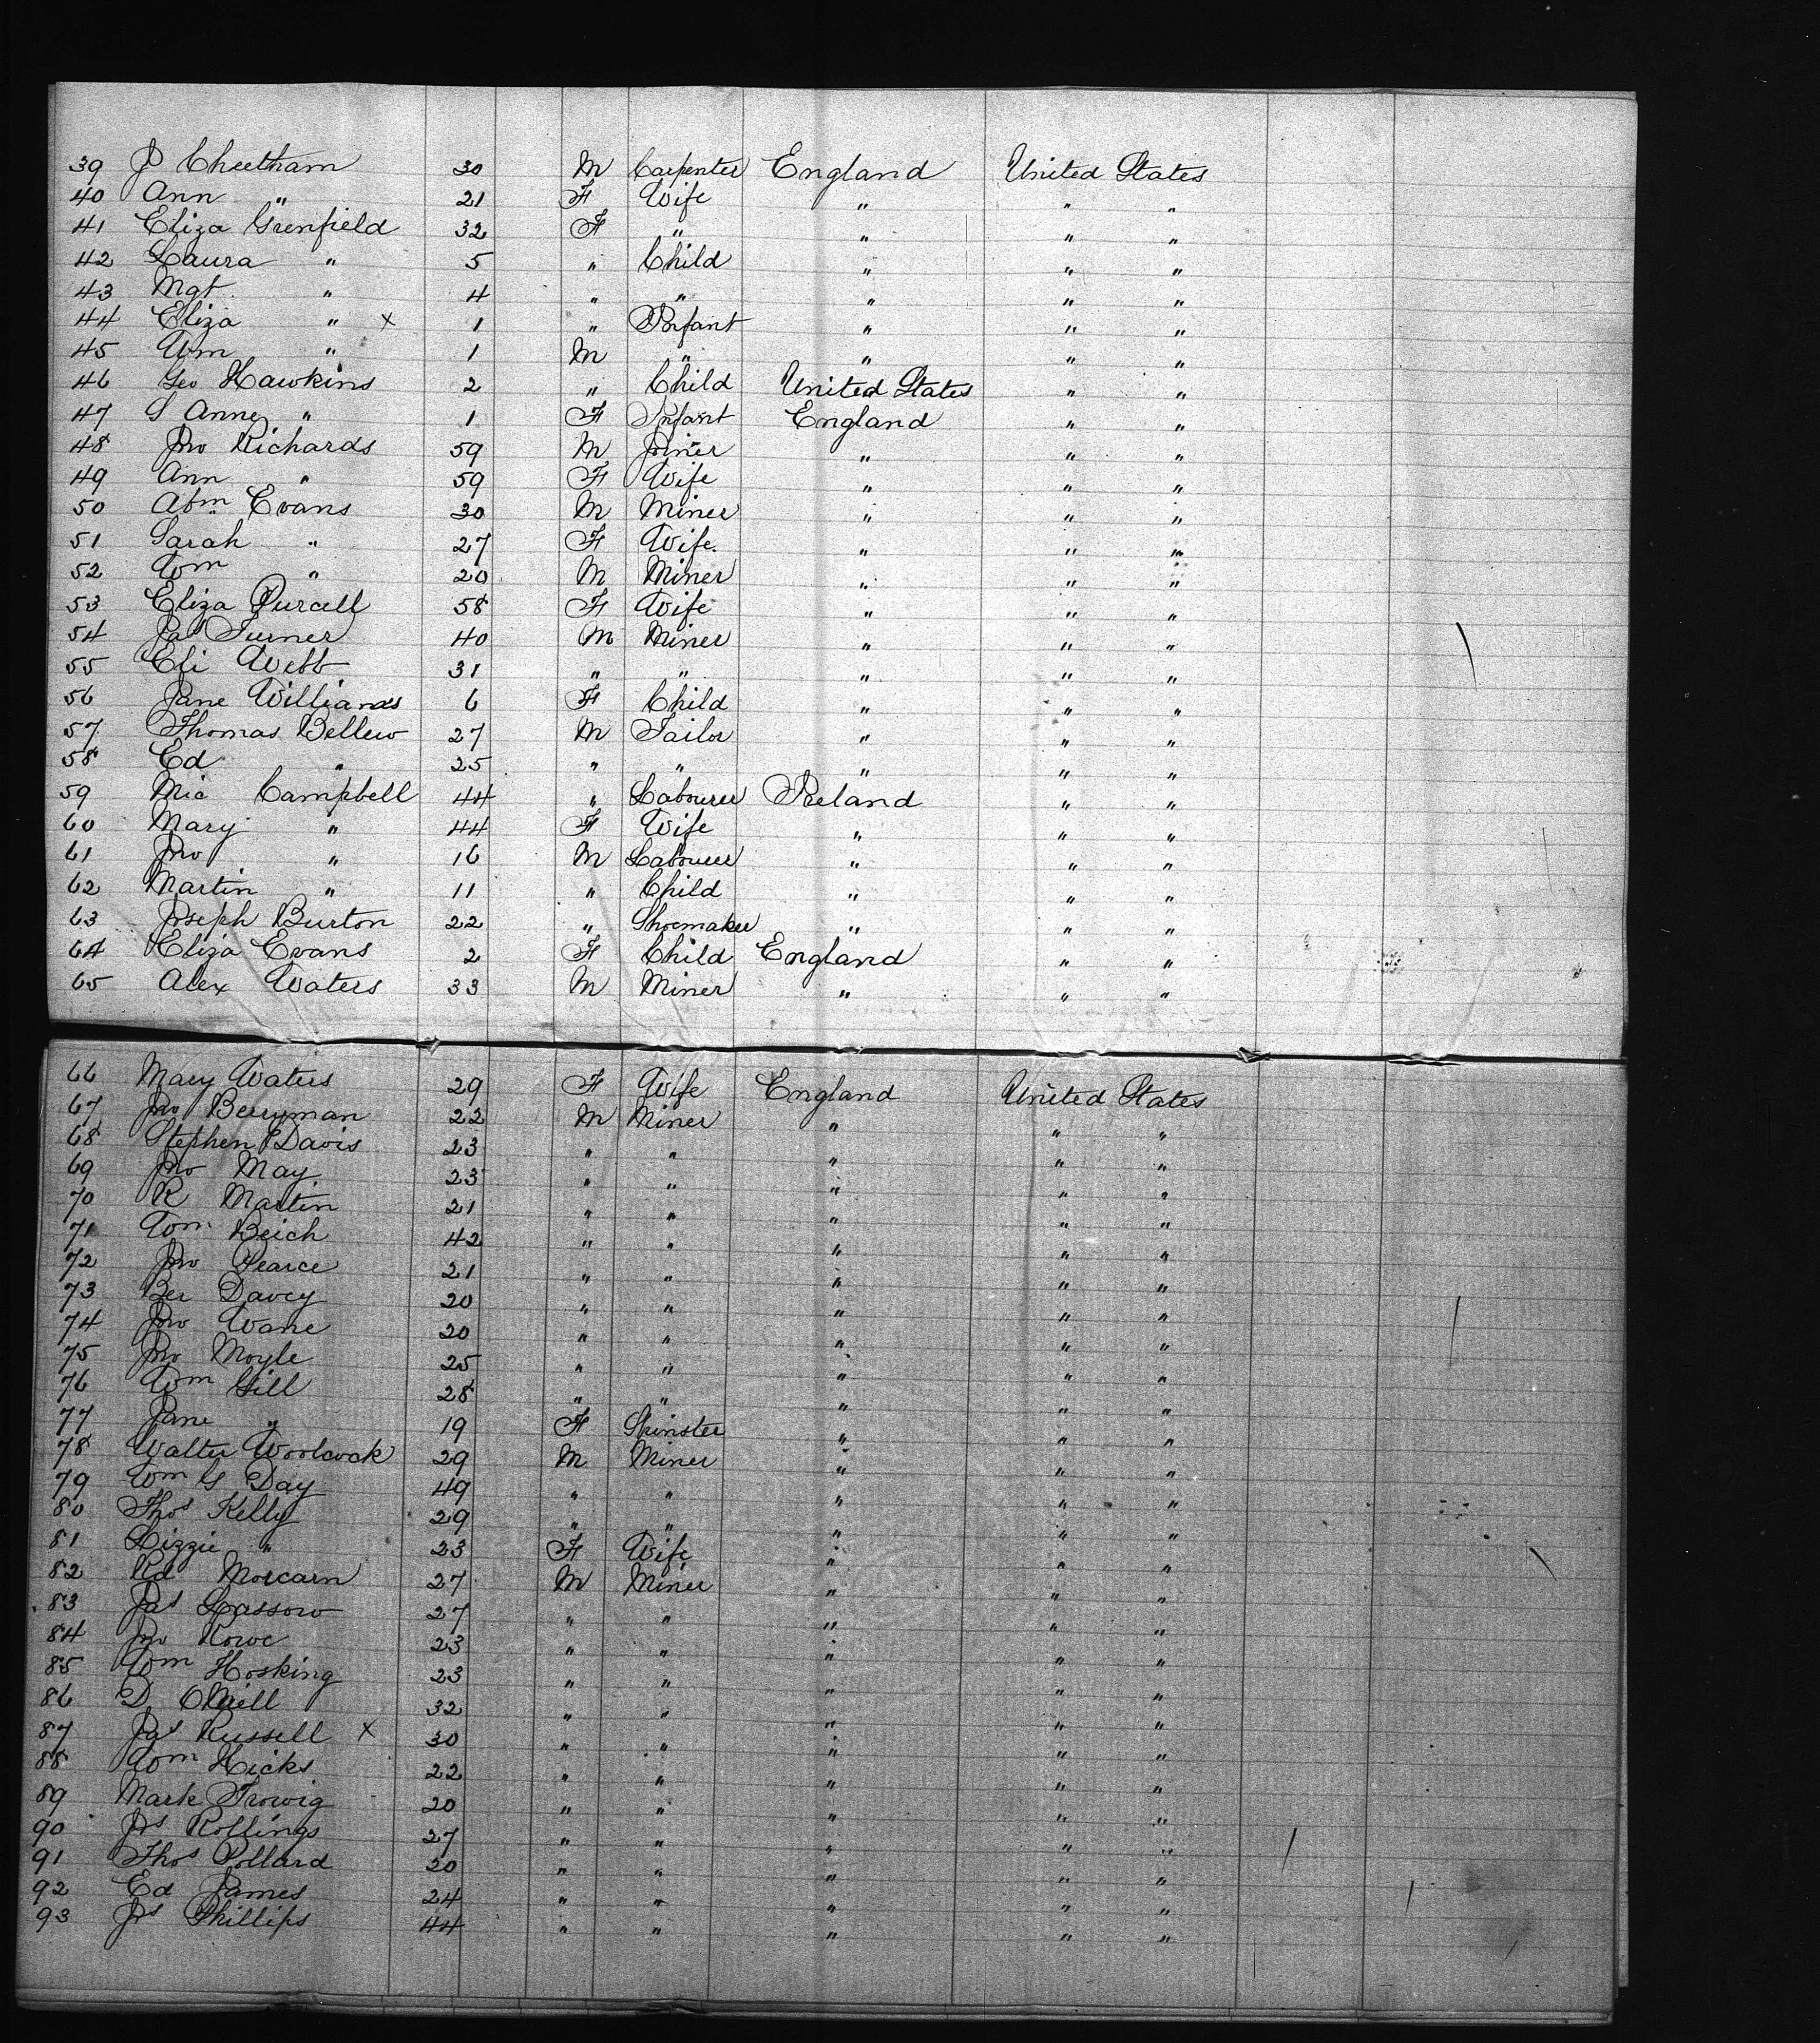 39 J Cheetham 30 M Carpenter England United States
40 Ann " 21 F Wife " " "
41 Eliza Grenfield 32 F " " " "
42 Laura " 5 " Child " " "
43 Mgt " 4 " " " " "
44 Eliza " x 1 " Infant " " "
45 Wm " 1 M " " " "
46 Geo Hawkins 2 " Child United States " "
47 S Anne " 1 F Infant England " "
48 Jno Richards 59 M Joiner " " "
49 Ann " 59 F Wife " " "
50 Abm Evans 30 M Miner " " "
51 Sarah " 27 F Wife " " "
52 Wm " 20 M Miner " " "
53 Eliza Purcell 58 F Wife " " "
54 Jas Turner 40 M Miner " " "
55 Eli Webb 31 " " " " "
56 Jane Williams 6 F Child " " "
57 Thomas Bellew 27 M Tailor " " "
58 Ed " 25 " " " " "
59 Mic Campbell 44 " Labourer Ireland " "
60 Mary " 44 F Wife " " "
61 Jno " 16 M Labourer " " "
62 Martin " 11 " Child " " "
63 Joseph Burton 22 " Shoemaker " " "
64 Eliza Evans 2 F Child England " "
65 Alex Waters 33 M Miner " " "
66 Mary Waters 29 F Wife England United States
67 Jno Berryman 22 M Miner " " "
68 Stephen Davis 23 " " " " "
69 Jno May 23 " " " " "
70 R Martin 21 " " " " "
71 Wm Beich 42 " " " " "
72 Jno Pearce 21 " " " " "
73 Ber Davey 20 " " " " "
74 Jno Wane 20 " " " " "
75 Jno Moyle 25 " " " " "
76 Wm Gill 28 " " " " "
77 Jane " 19 F Spinster " " "
78 Walter Woolcock 29 M Miner " " "
79 Wm G Day 49 " " " " "
80 Thos Kelly 29 " " " " "
81 Lizzie " 23 F Wife " " "
82 Rd Morcarn 27 M Miner " " "
83 Jas Lassow 27 " " " " "
84 Jno Rowe 23 " " " " "
85 Wm Hosking 23 " " " " "
86 D ONeill 32 " " " " "
87 Jas Russell x 30 " " " " "
88 Wm Hicks 22 " " " " "
89 Mark Trowig 20 " " " " "
90 Jos Rollings 27 " " " " "
91 Thos Pollard 20 " " " " "
92 Ed James 24 " " " " "
93 Jos Phillips 44 " " " " "